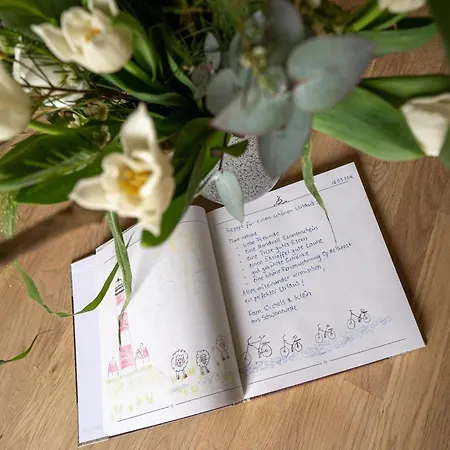 Rezept für einen schönen Urlaub:
Man nehme
- liebe Freunde
- eine Handvoll Sonnenschein
- eine Prise gutes Essen
- einen Esslöffel gute Laune
- gut gekühlte Getränke
- eine schöne Ferienwohnung
Alles miteinander vermischen,
ein perfekter Urlaub!
Fam.
aus